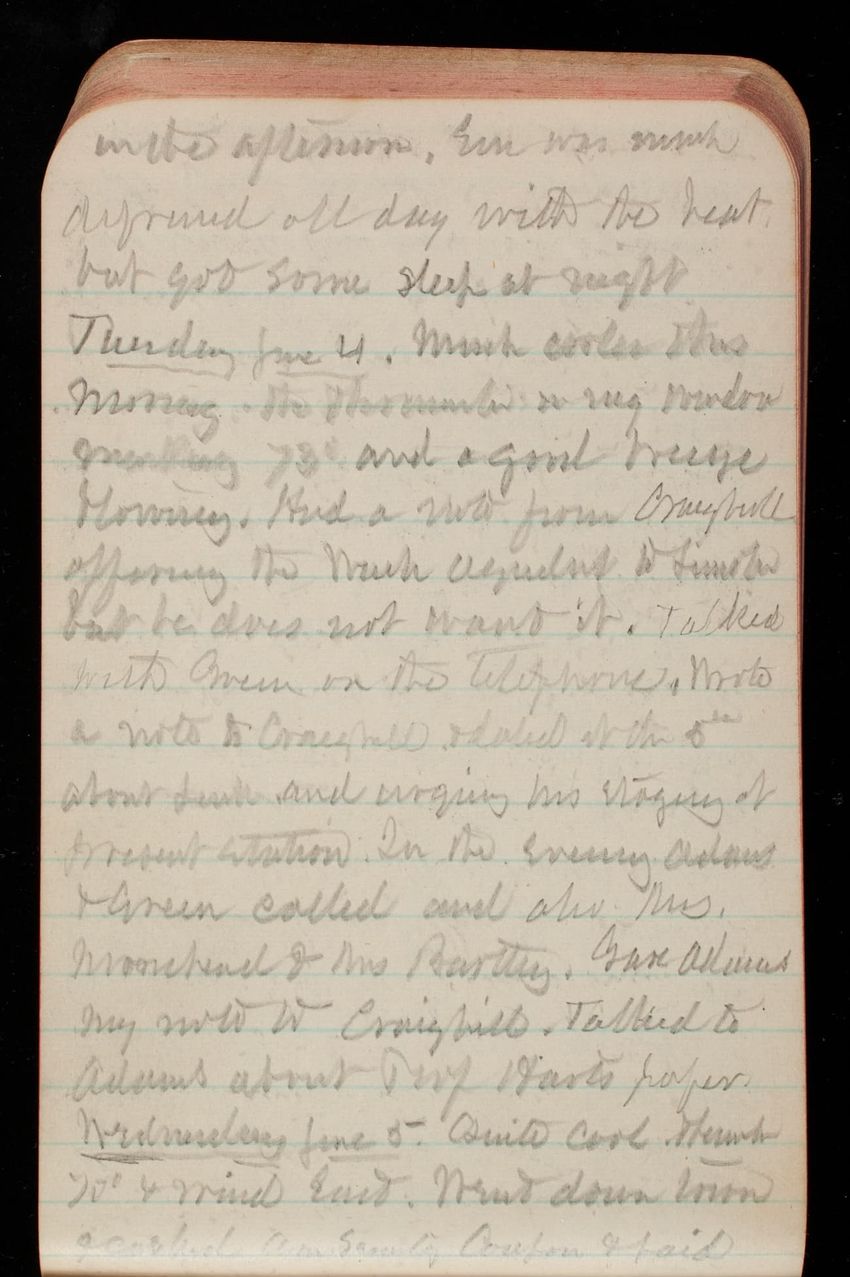 in the afternoon. Em was much
depressed all day with the heat
but got some sleep at night
Tuesday June 4. Much cooler this
Morning. The thermometer in my window
marking 73° and a good breeze
blowing. Had a note from Craighill
offering the to
but he does not want it. Talked
with Green on the Telephone. Wrote
a note to Craighill dated the 5th
about and urging his staying at
present station. In the Evening Adams
& Green called and also Mrs.
Moorehead & Mrs Bartley. Gave Adams
my note to Craighill. Talked to
Adams about Prof Harts paper.
Wednesday June 5. Quite cool
70° & wind East. Went down town
& cashed Am Security Coupon & paid